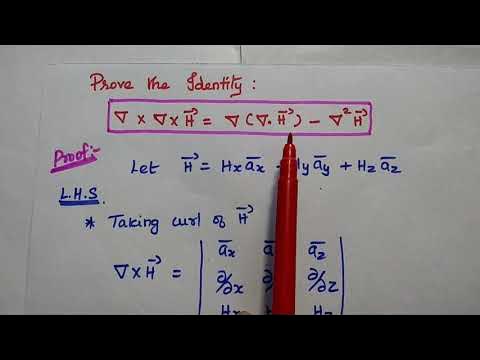 Prove the Identity :
∇ × ∇ × H⃗ = ∇ (∇. H⃗) - ∇² H⃗
Proof:-
Let H⃗ = Hx a̅x Hy a̅y + Hz a̅z
L.H.S
* Taking curl of H⃗
∇ × H⃗ = | a̅x a̅z |
∂/∂x ∂/∂z
Hx Hz